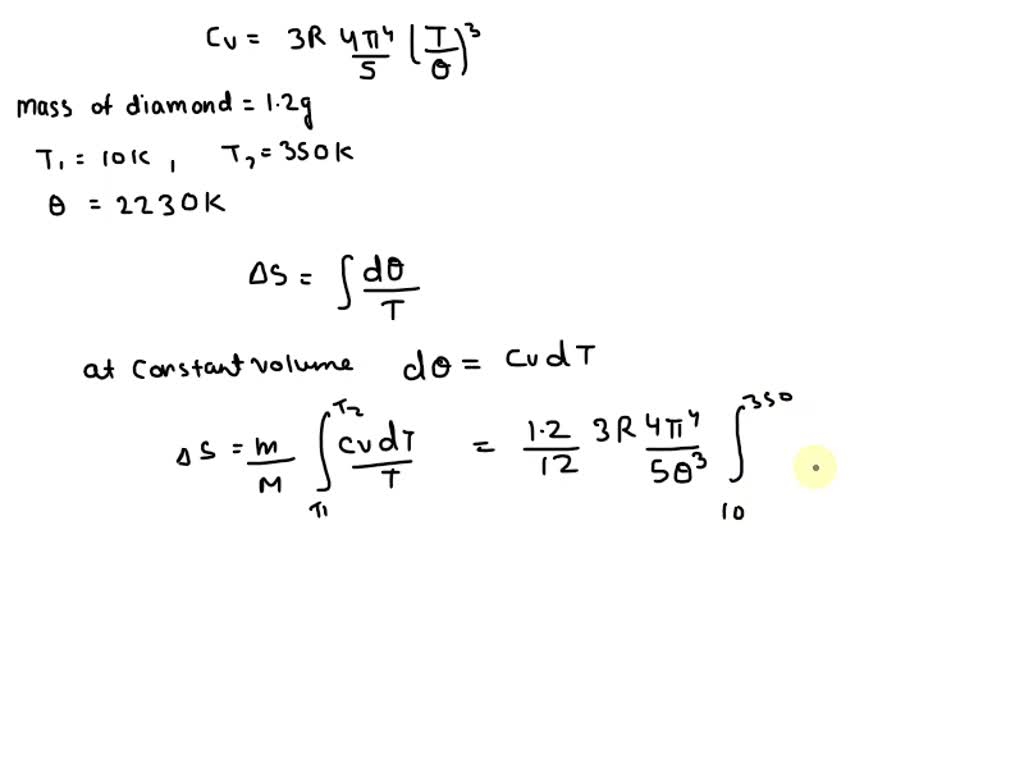 Cv = 3R 4π⁴/5 (T/θ)³
mass of diamond = 1.2g
T₁ = 10K, T₂ = 350K
θ = 2230K
ΔS = ∫ dθ/T
at constant volume dθ = CvdT
ΔS = m/M ∫_T1^T2 CvdT/T = 1.2/12 3R 4π⁴/5θ³ ∫_10^350